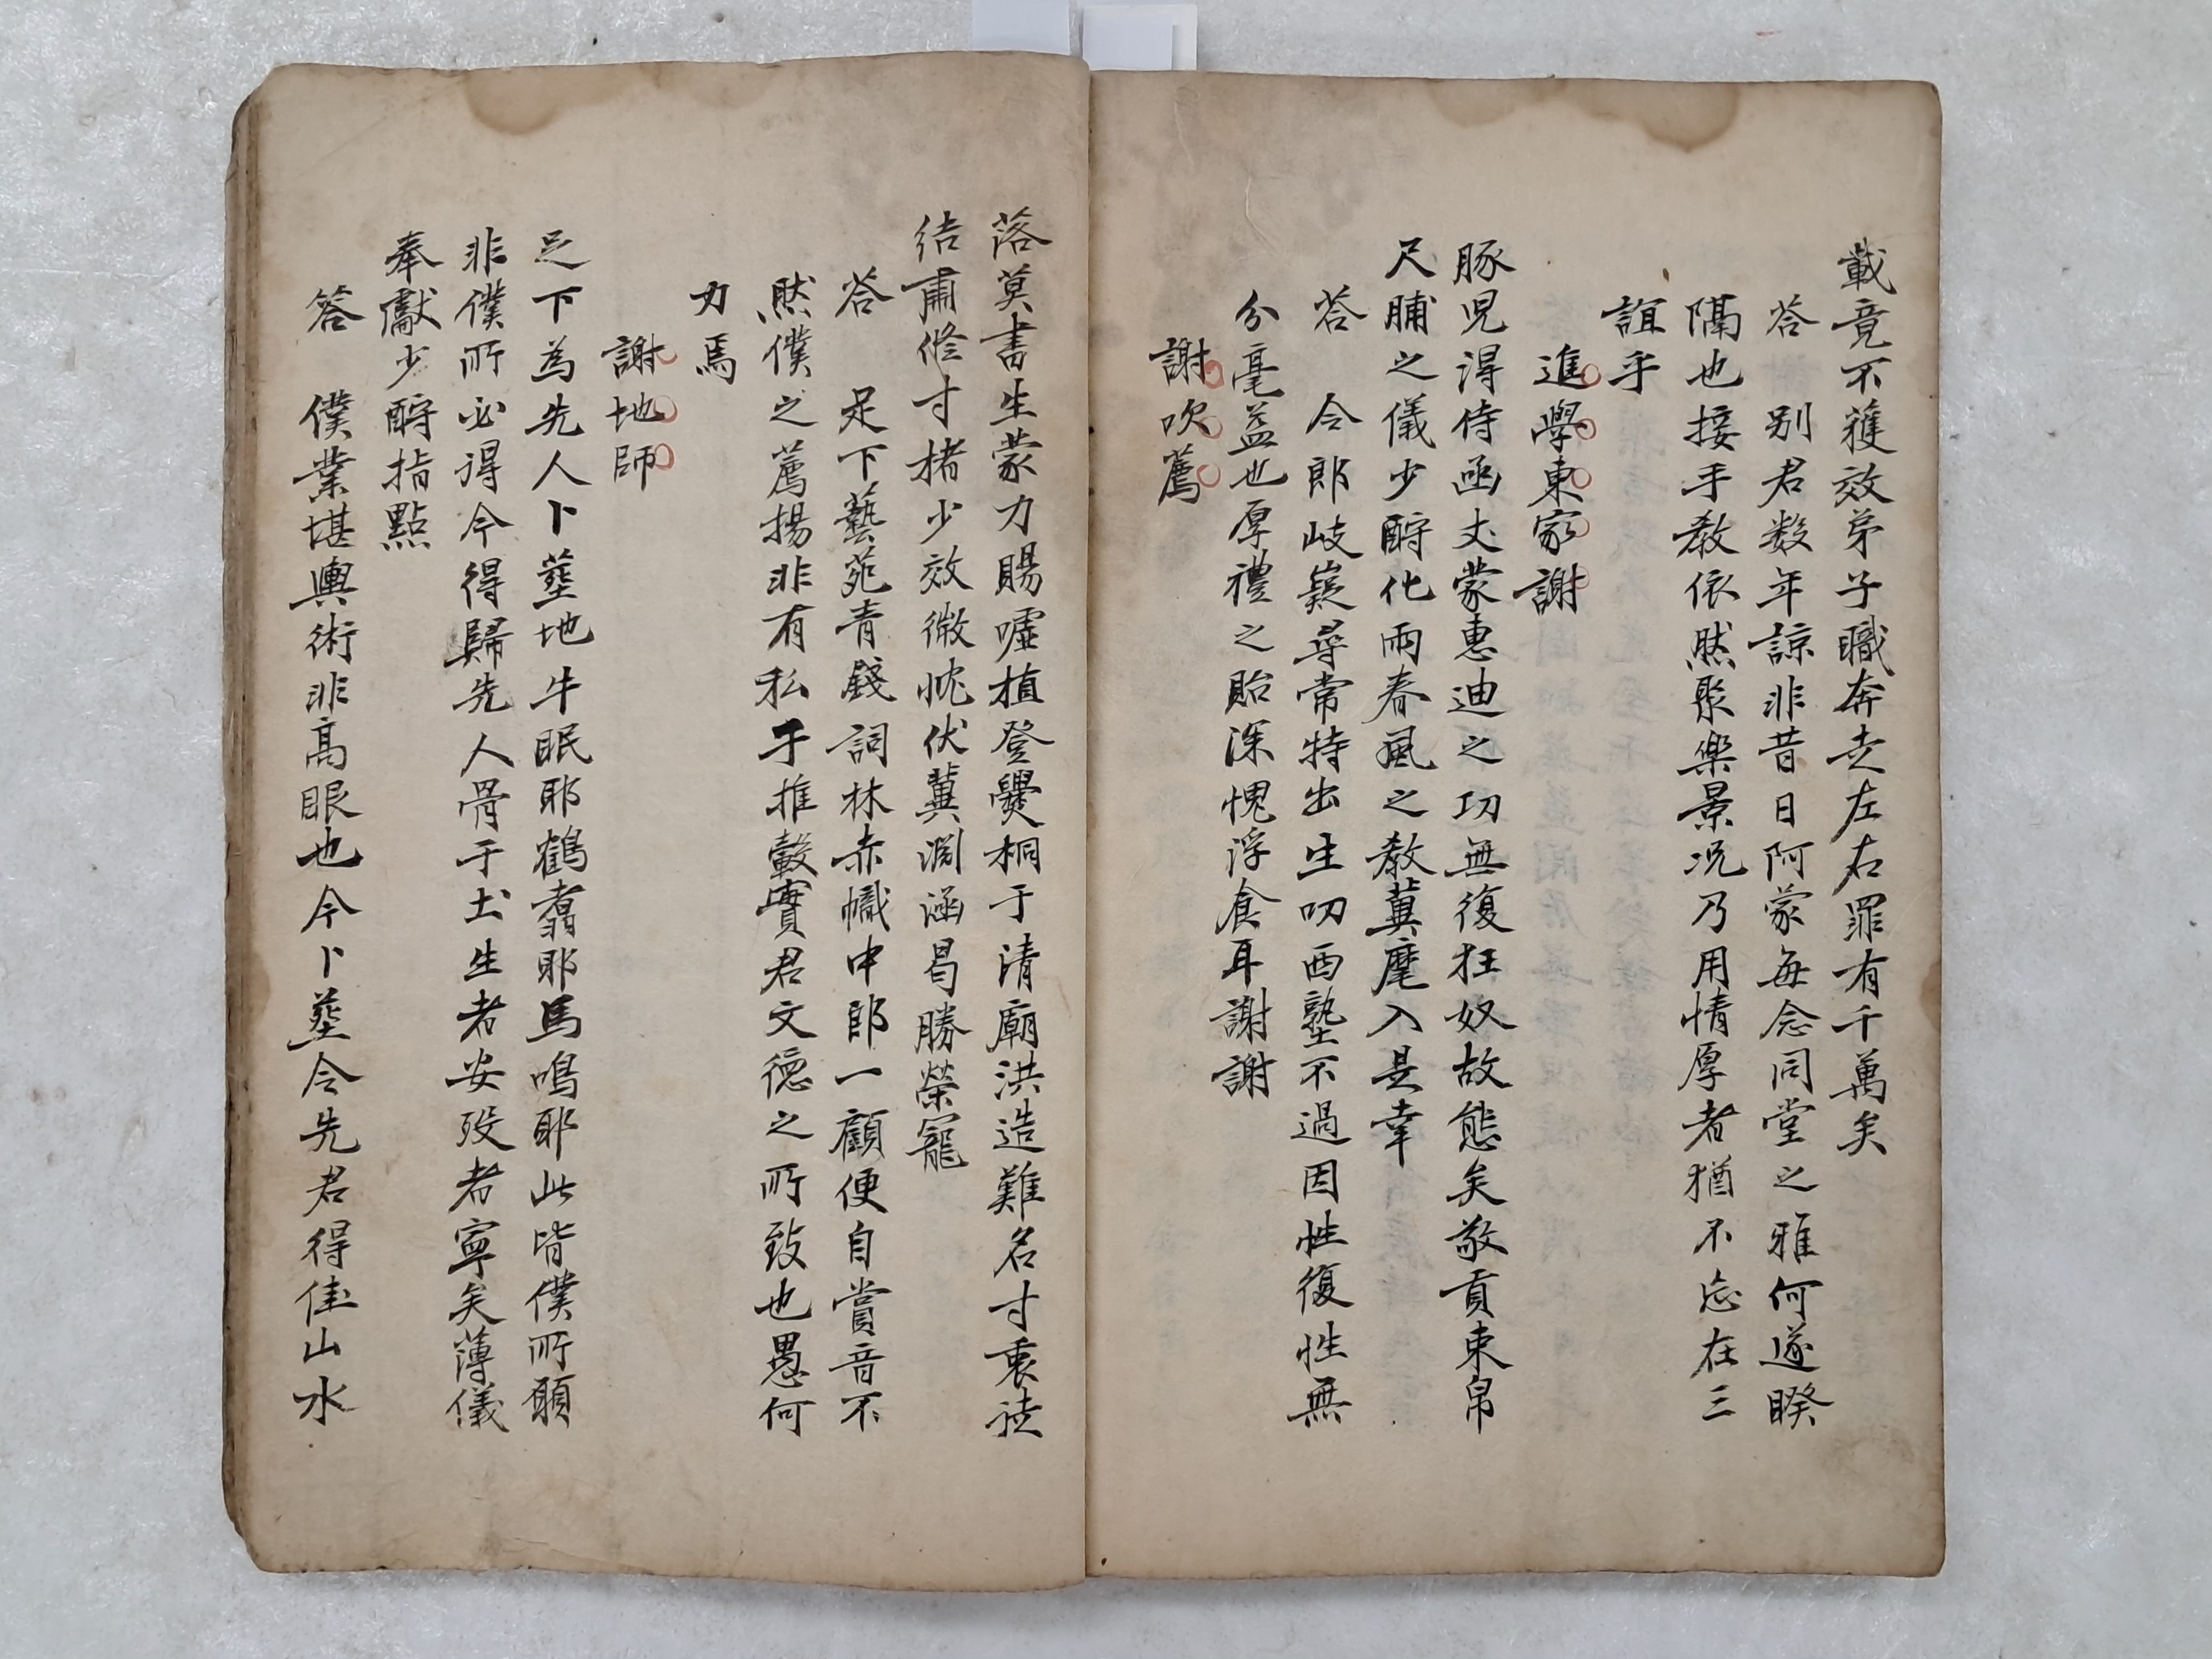 載竟不獲效弟子職奔走左右罪有千萬矣
答　别君数年諒非昔日阿蒙每念同堂之雅何遂睽
隔也接手教依然聚樂景况乃用情厚者猶不忘在三
誼乎
進學東家謝
豚児得侍函丈蒙惠迪之功無復狂奴故態矣敬貢束帛
尺脯之儀少酧化雨春風之教冀麾入是幸
答　令郎岐嶷尋常特出生叨西塾不過因性復性無
分毫益也厚禮之貽深愧浮食耳謝謝
謝吹薦
落莫書生蒙力賜噓植登爨桐于清廟洪造難名寸衷徒
结肅修寸楮少效微忱伏冀淵涵曷勝榮寵
答　足下藝苑青錢詞林赤幟中郎一顧便自賞音不
然僕之薦揚非有私于推轂實君文德之所致也愚何
力焉
謝地師
足下為先人卜塟地牛眠耶鶴翥耶馬鳴耶此皆僕所願
非僕所必得今得歸先人骨于土生者安殁者寧矣薄儀
奉獻少酧指點
答　僕業堪輿術非高眼也今卜塟令先君得佳山水